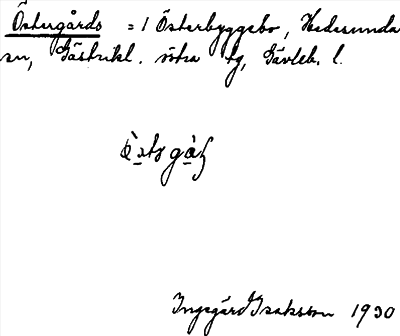 Östergårds = 1 Österbyggebo, Hedesunda
sn, Gästrikl. östra tg, Gävleb. l.
Ingegärd Isaksson 1930